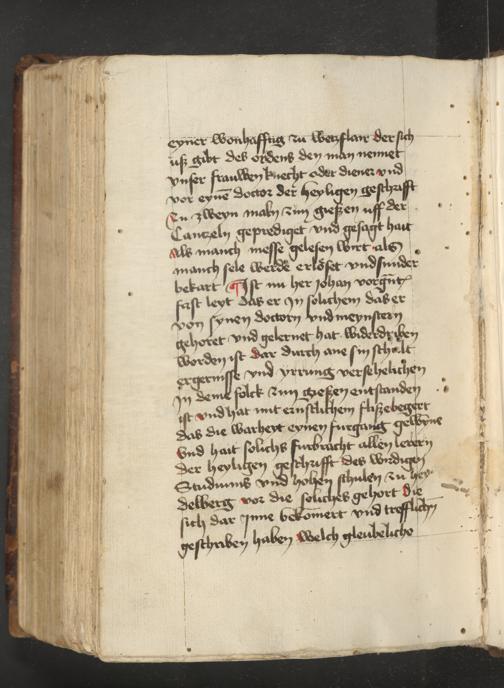 eyner wonhafftig zu wetzflair der sich
usz gibt des ordens den man nennet
vnser frauwen knecht oder diener vnd
vor eyne doctor der heyligen geschrifft
Zu zweyn maln zum gieszen uff der
Cantzeln geprediget vnd gesagt hait
Als manch messe gelesen wirt als
manch sele werde erlöset vnd sunder
bekart ¶ Ist nu her johan
fast leyt das er Jn solichem das er
von synen doctorn vnd meynstern
gehoret vnd gelernet hat widerdriben
worden ist dar durch ane sin scholt
ergernisse vnd yrrung versehelichen
Jn deme folck zum gieszen entstanden
ist vnd hat mit ernstlichem flisze begert
das die warheyt eynen furgang gewyne
vnd hait solichs furbracht allen lerern
der heyligen geschrifft des wirdigen
Studiums vnd hohen schulen zu hey
delberg vor die soliches gehort Die
sich dar Jnne bekomert vnd trefflichn
geschriben haben welch gleubeliche